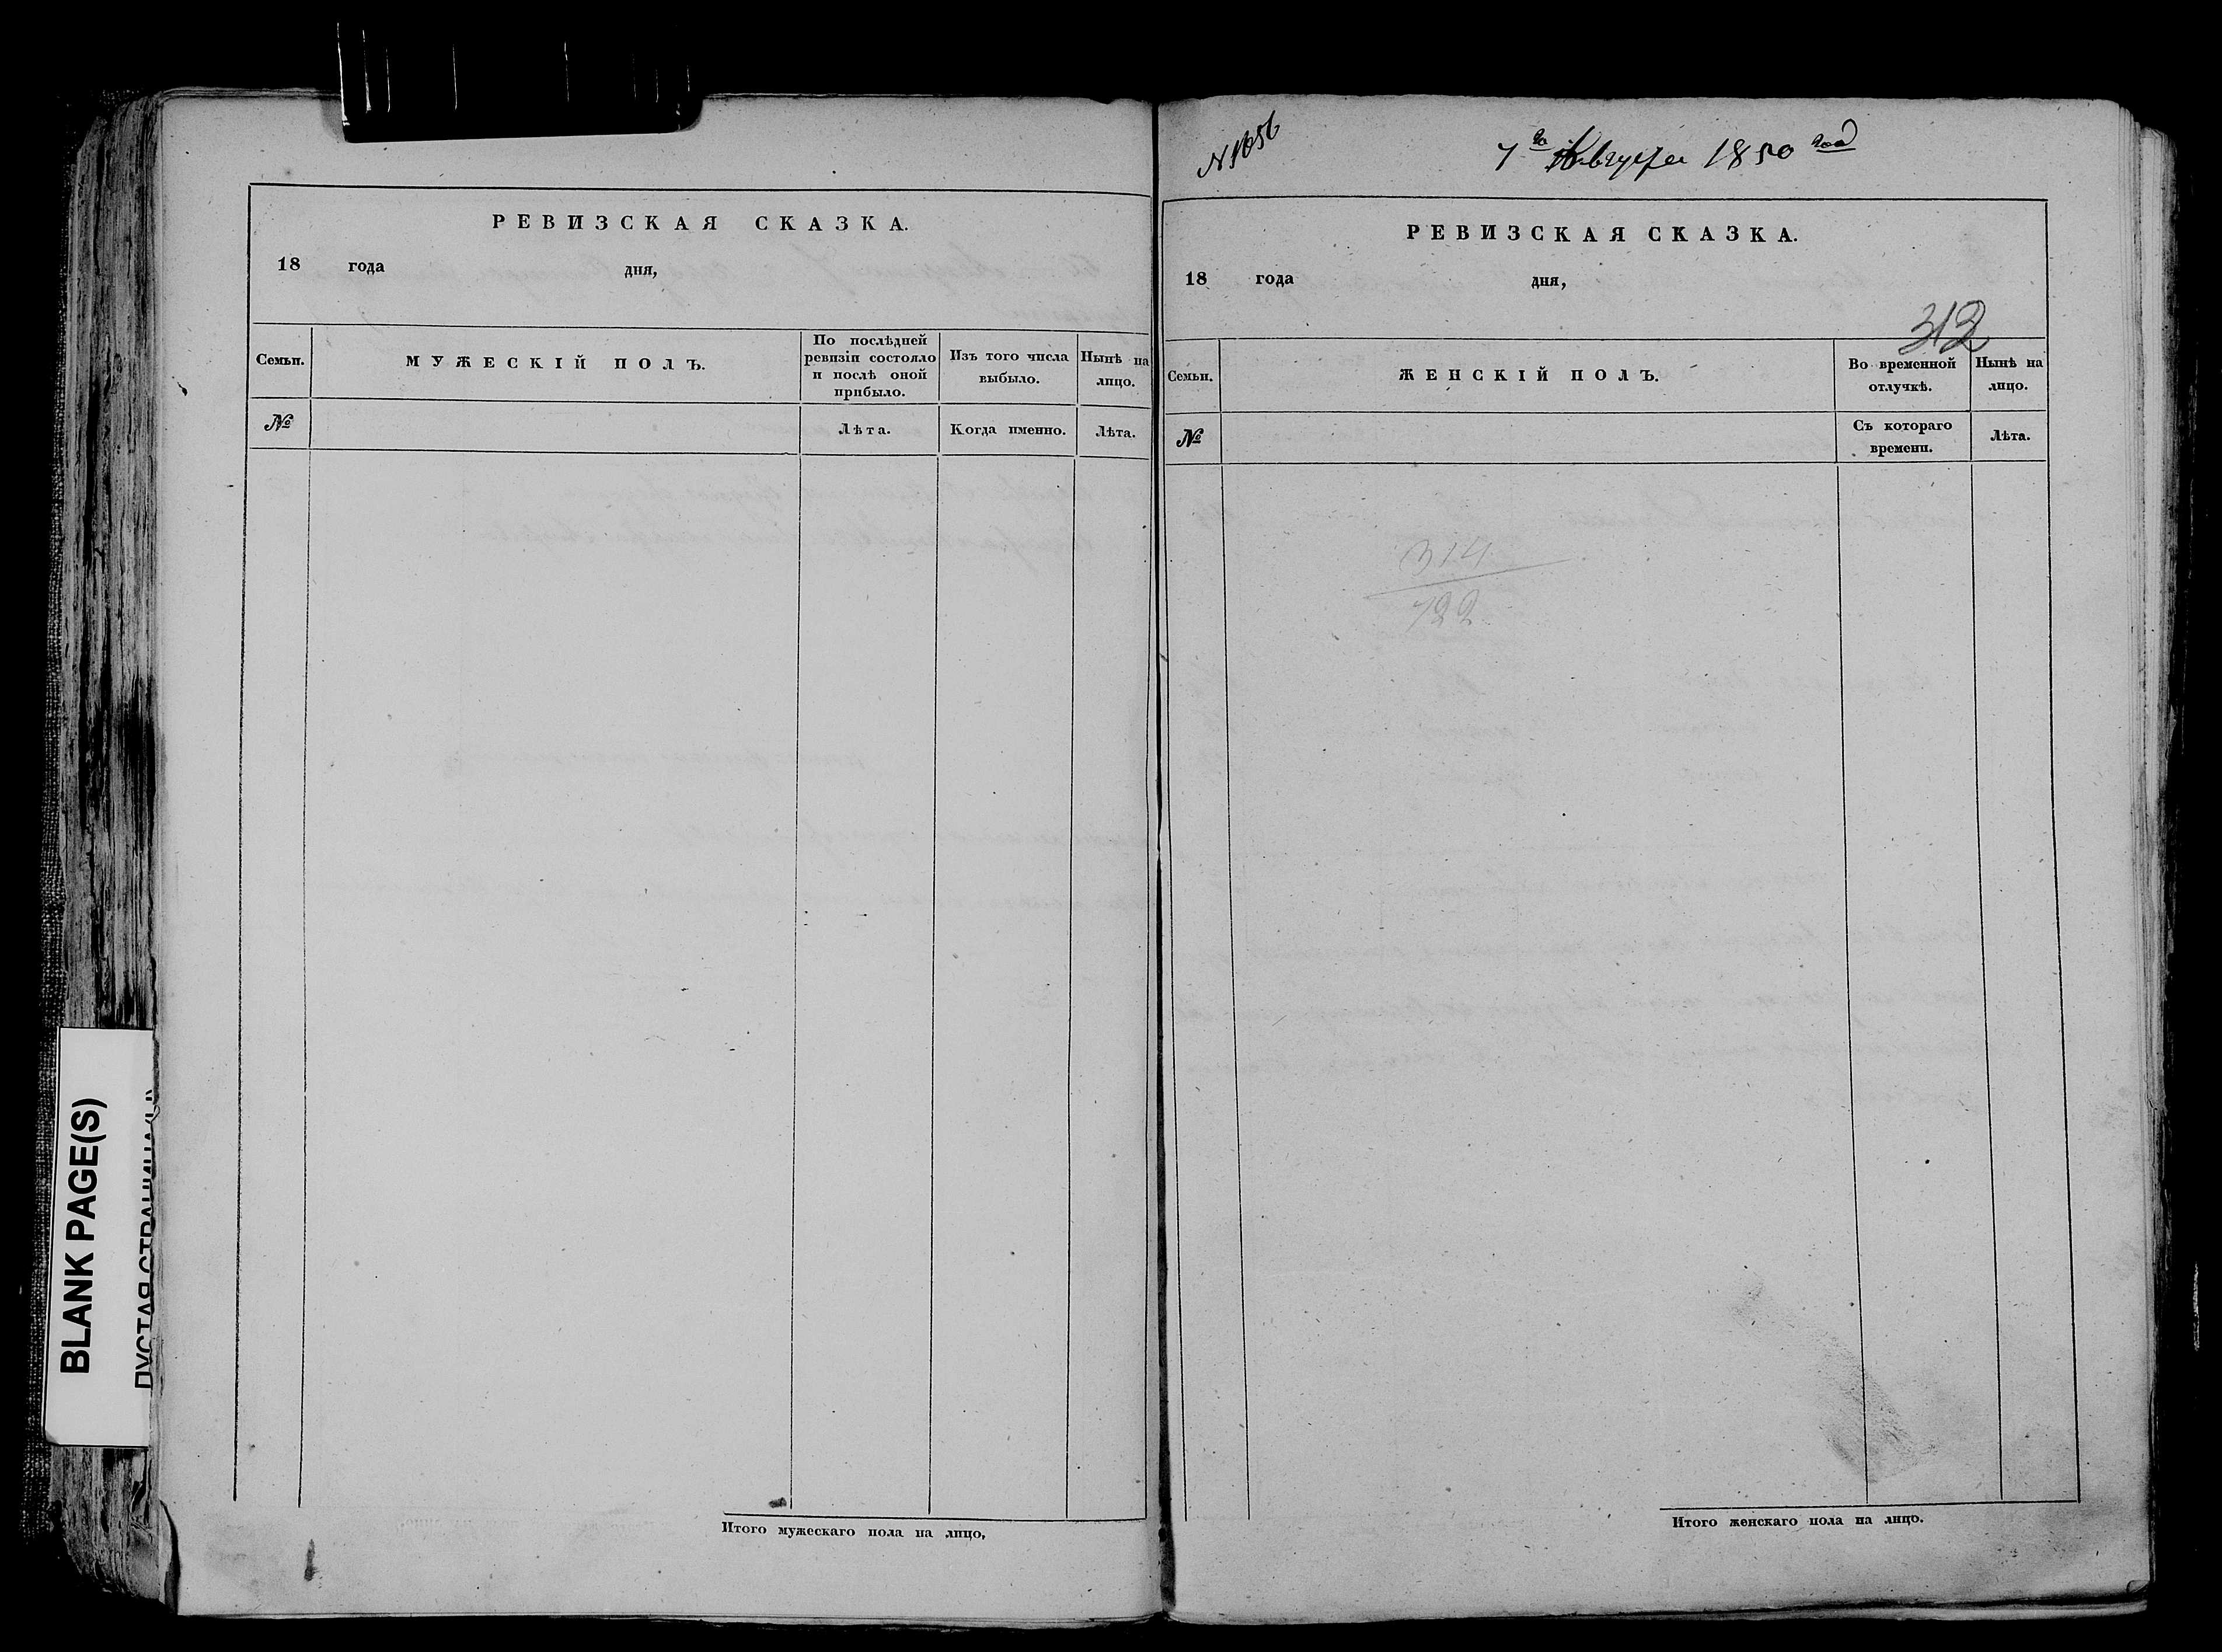 РЕВИЗСКАЯ СКАЗКА.
18 года дня,
Семьи.
МУЖЕСКІЙ ПОЛЪ.
По послѣдней ревизіи состояло и послѣ оной прибыло.
Изъ того числа выбыло.
Нынѣ на лицо.
№
Лѣта.
Когда именно.
Лѣта.
Итого мужескаго пола на лицо,
N 1056
7го Августа 1850 год
РЕВИЗСКАЯ СКАЗКА.
18 года дня,
312
Семьи.
ЖЕНСКІЙ ПОЛЪ.
Во временной отлучкѣ.
Нынѣ на лицо.
№
Съ котораго времени.
Лѣта.
314
722
Итого женскаго пола на лицо.
BLANK PAGE(S)
ПУСТАЯ СТРАНИЦА(Ы)